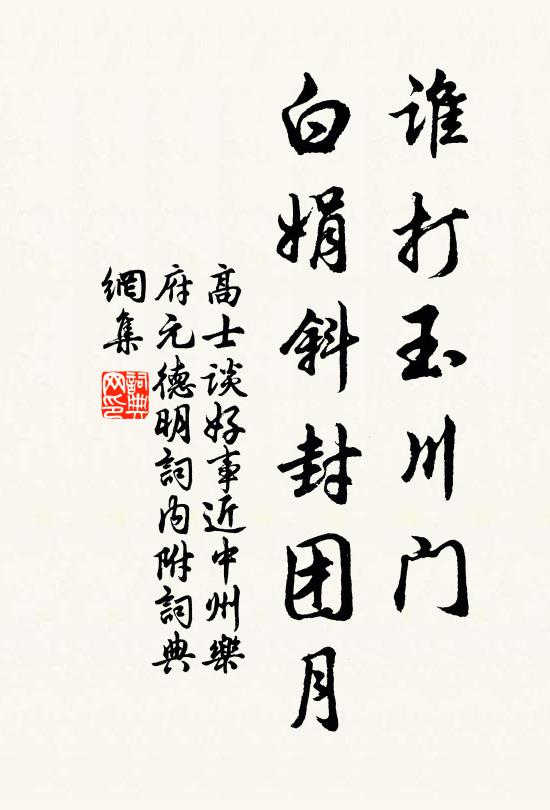 谁打玉川门
白娟斜封团月
高士谈好事近中州樂
府元德明詞内附詞典
網集
詞典
网印